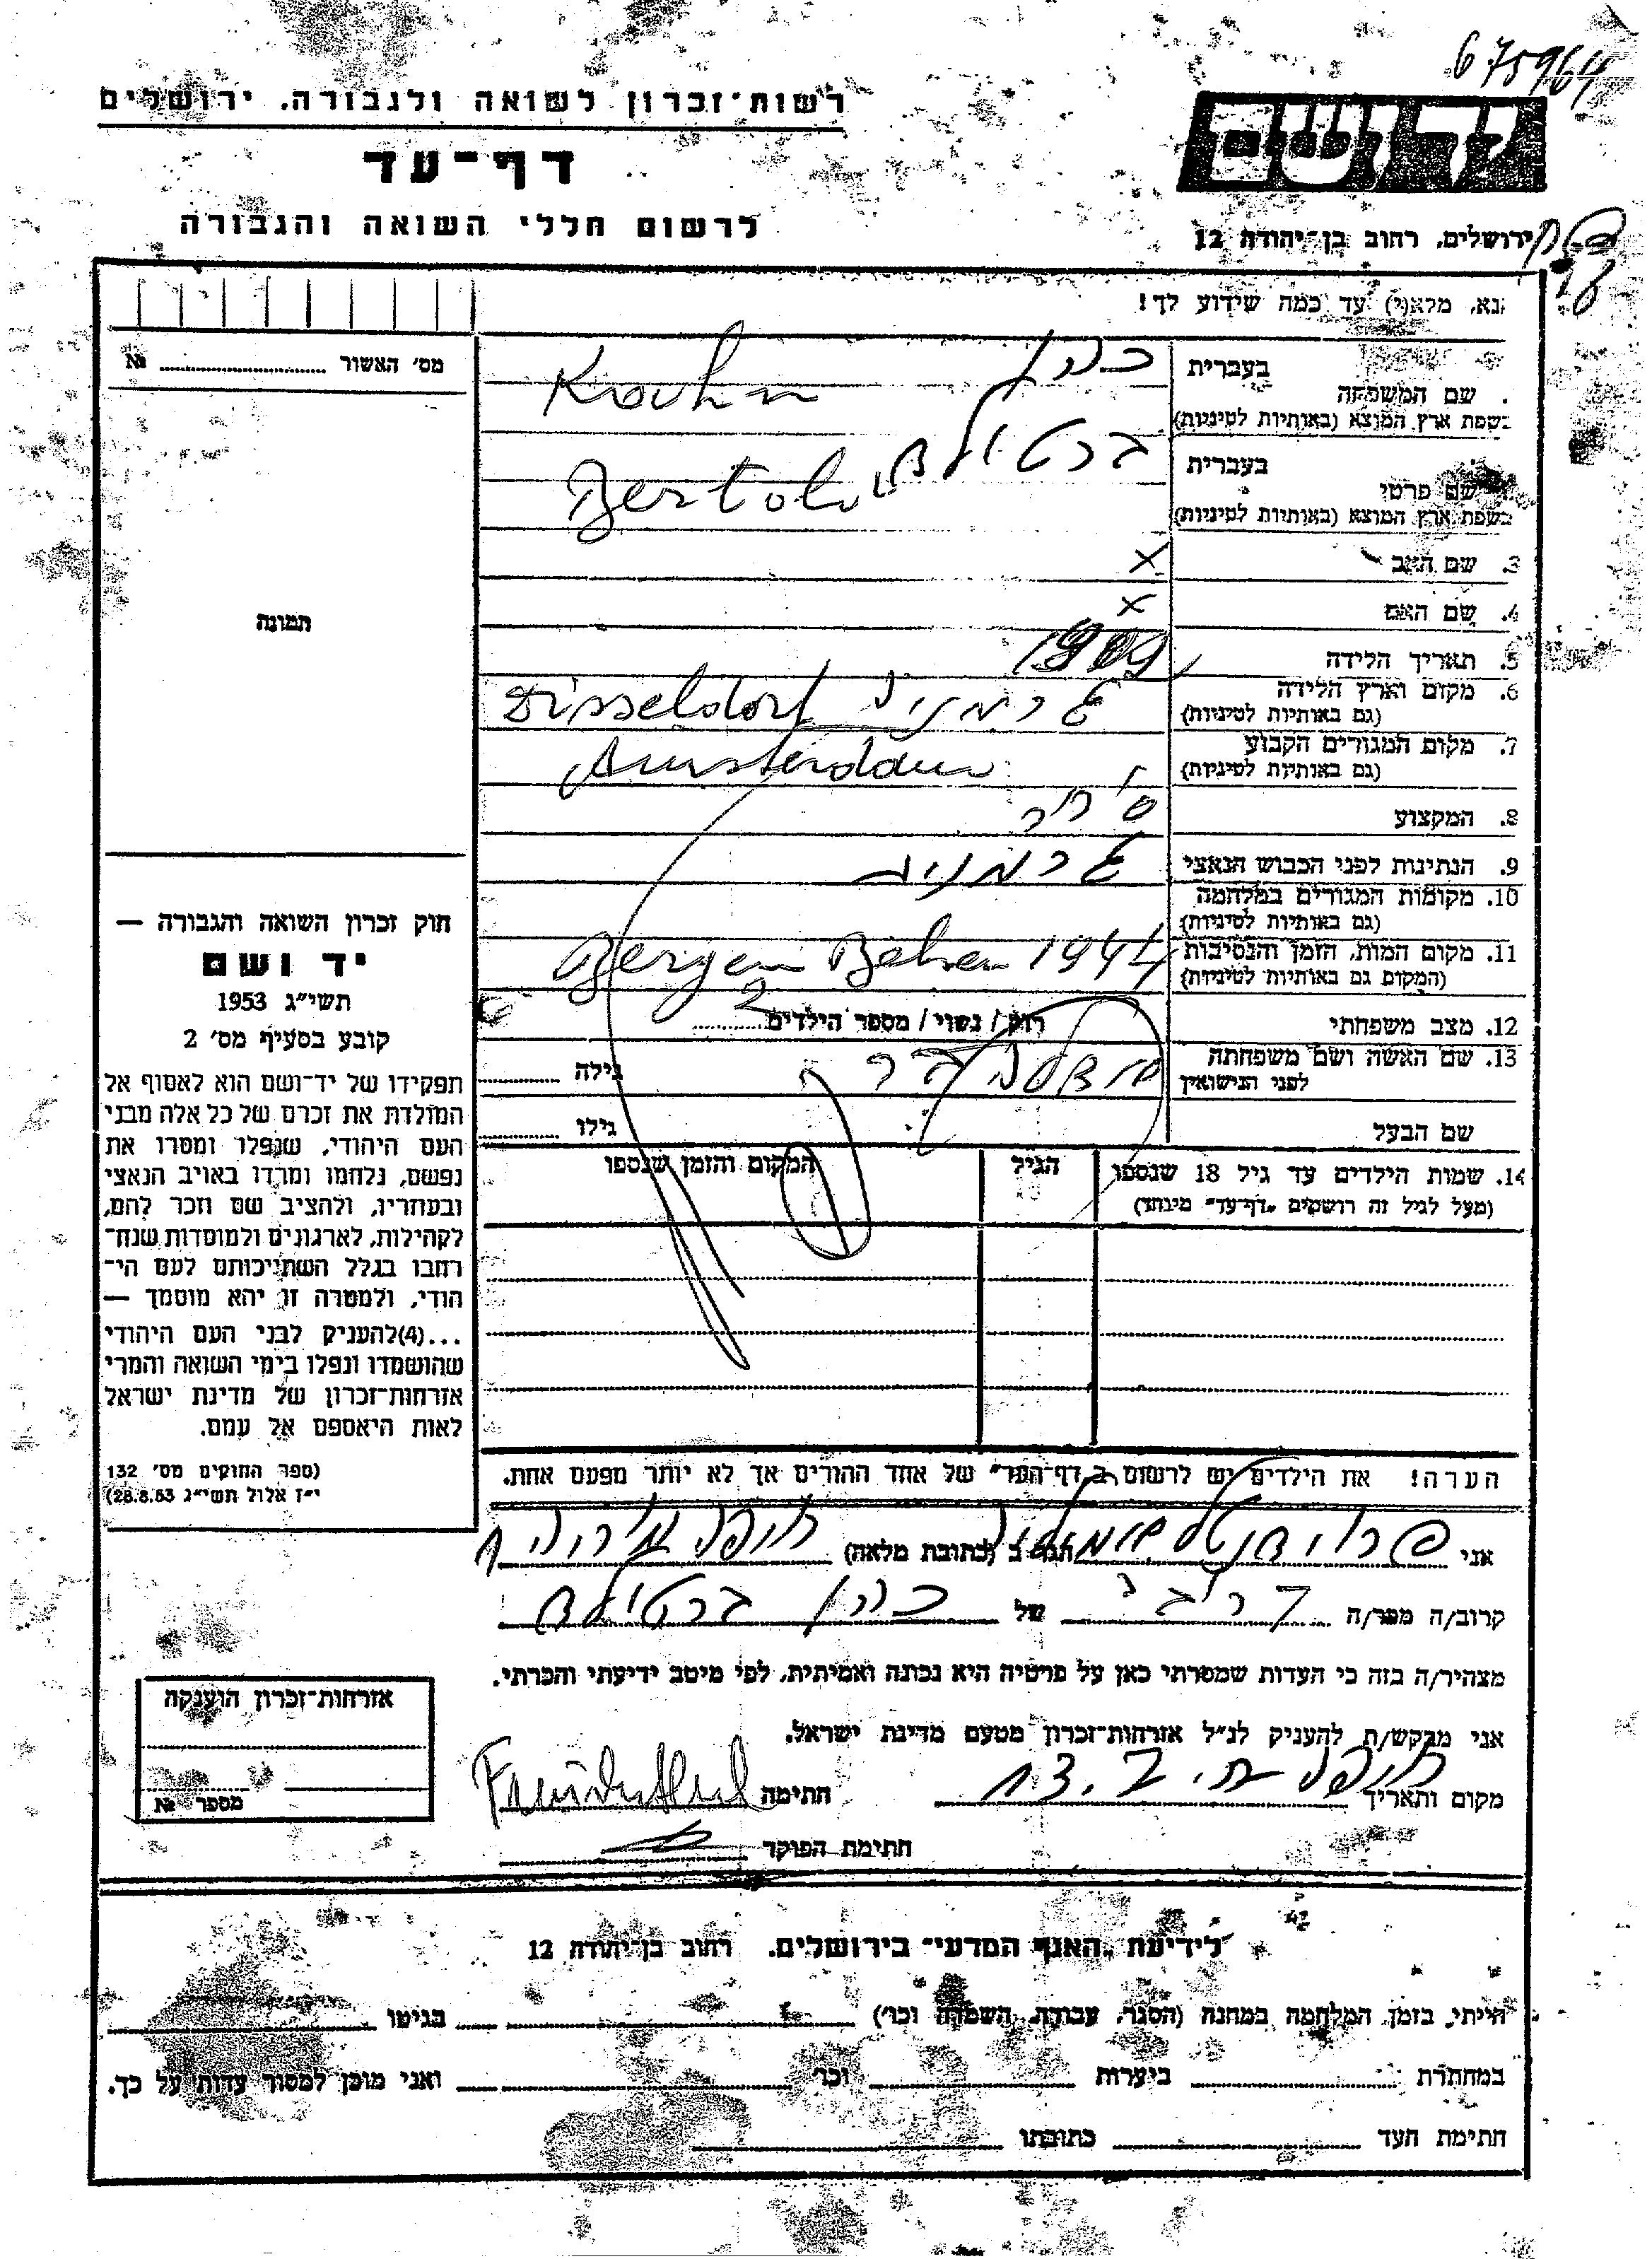 675964
רשות־זכרון לשואה ולגבורה, ירושלים
יד ושם
דף־עד
לרשום חללי השואה והגבורה
ירושלים, רחוב בן־יהודה 12
נא, מלא(י) עד כמה שידוע לך!
מס׳ האשור № 
בעברית כהן
שם המשפחה
בשפת ארץ המוצא (באותיות לטיניות)
בעברית ברטולד
שם פרטי
בשפת ארץ המוצא (באותיות לטיניות)
3. שם האב x
4. שם האם x
5. תאריך הלידה
6. מקום וארץ הלידה גרמניה Disseldorf
(גם באותיות לטיניות)
7. מקום המגורים הקבוע Amsterdam
(גם באותיות לטיניות)
8. המקצוע סוחר
9. הנתינות לפני הכבוש הנאצי גרמניה
10. מקומות המגורים במלחמה
(גם באותיות לטיניות)
11. מקום המות, הזמן והנסיבות Bergen Belsen 1944
(המקום גם באותיות לטיניות)
12. מצב משפחתי רווק / נשוי / מספר הילדים 2
13. שם האשה ושם משפחתה גילה
לפני הנישואין
שם הבעל גילו
14. שמות הילדים עד גיל 18 שנספו הגיל המקום והזמן שנספו
(מעל לגיל זה רושמים "דף־עד" מיוחד)
תמונה
חוק זכרון השואה והגבורה —
יד ושם
תשי״ג 1953
קובע בסעיף מס׳ 2
תפקידו של יד־ושם הוא לאסוף אל
המולדת את זכרם של כל אלה מבני
העם היהודי, שנפלו ומסרו את
נפשם, נלחמו ומרדו באויב הנאצי
ובעוזריו, ולהציב שם וזכר להם,
לקהילות, לארגונים ולמוסדות שנח־
רבו בגלל השתייכותם לעם הי־
הודי, ולמטרה זו יהא מוסמך —
...(4)להעניק לבני העם היהודי
שהושמדו ונפלו בימי השואה והמרי
אזרחות־זכרון של מדינת ישראל
לאות היאספם אל עמם.
(ספר החוקים מס׳ 132
י״ז אלול תשי״ג 28.8.53)
הערה! את הילדים יש לרשום ב"דף־העד" של אחד ההורים אך לא יותר מפעם אחת.
אני הגר ב (כתובת מלאה)
קרוב/ה מכר/ה של כהן ברטולד
מצהיר/ה בזה כי העדות שמסרתי כאן על פרטיה היא נכונה ואמיתית, לפי מיטב ידיעתי והכרתי.
אני מבקש/ת להעניק לנ״ל אזרחות־זכרון מטעם מדינת ישראל.
מקום ותאריך חתימה
חתימת הפוקד
אזרחות־זכרון הוענקה
מספר №
לידיעת "האגף המדעי" בירושלים, רחוב בן־יהודה 12
הייתי, בזמן המלחמה במחנה (הסגר, עבודה, השמדה וכו׳) בגיטו
במחתרת ביערות וכו׳ ואני מוכן למסור עדותי על כך.
חתימת העד כתובתו